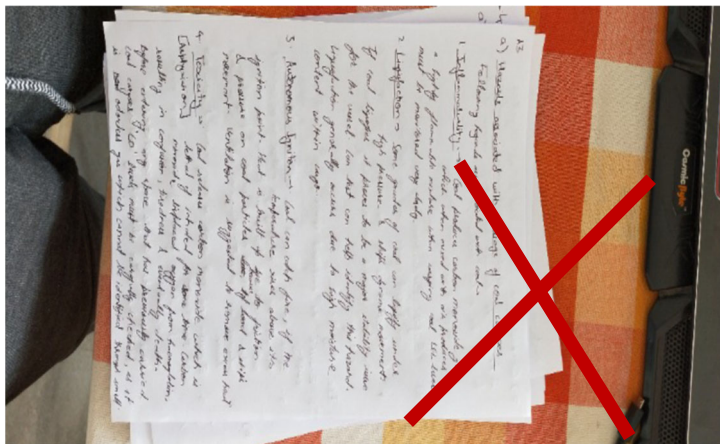 a) Hazards associated with carriage of coal cargoes
Following hazards are associated with coal :-
1. Inflammability → Coal produce carbon monoxide &
which when mixed with air produces
a highly flammable mixture within
must be monitored very closely.
2. Liquefaction → Some grades of coal can liquify under
high pressure & ship's forward movement.
If coal liquifies it proves to be a major stability
for the vessel can that can help identify this hazard.
Liquefaction generally occurs due to high moisture
content within cargo
3. Autonomous Ignition → Coal can catch fire, if the
temperature rise above its
ignition point. Heat is built up due to friction
& pressure on coal particles & ship
movement. Ventilation is suggested to remove excess heat
4. Toxicity → Coal releases carbon monoxide which is
[Asphyxiation] lethal if inhaled for some time. Carbon
monoxide displaced oxygen from haemoglobin,
resulting in confusion, tiredness & eventually death.
before entering any space that has previously carried
coal cargoes, CO levels must be carefully checked, as it
is odourless gas which cannot be identified through smell
Cosmic Byte